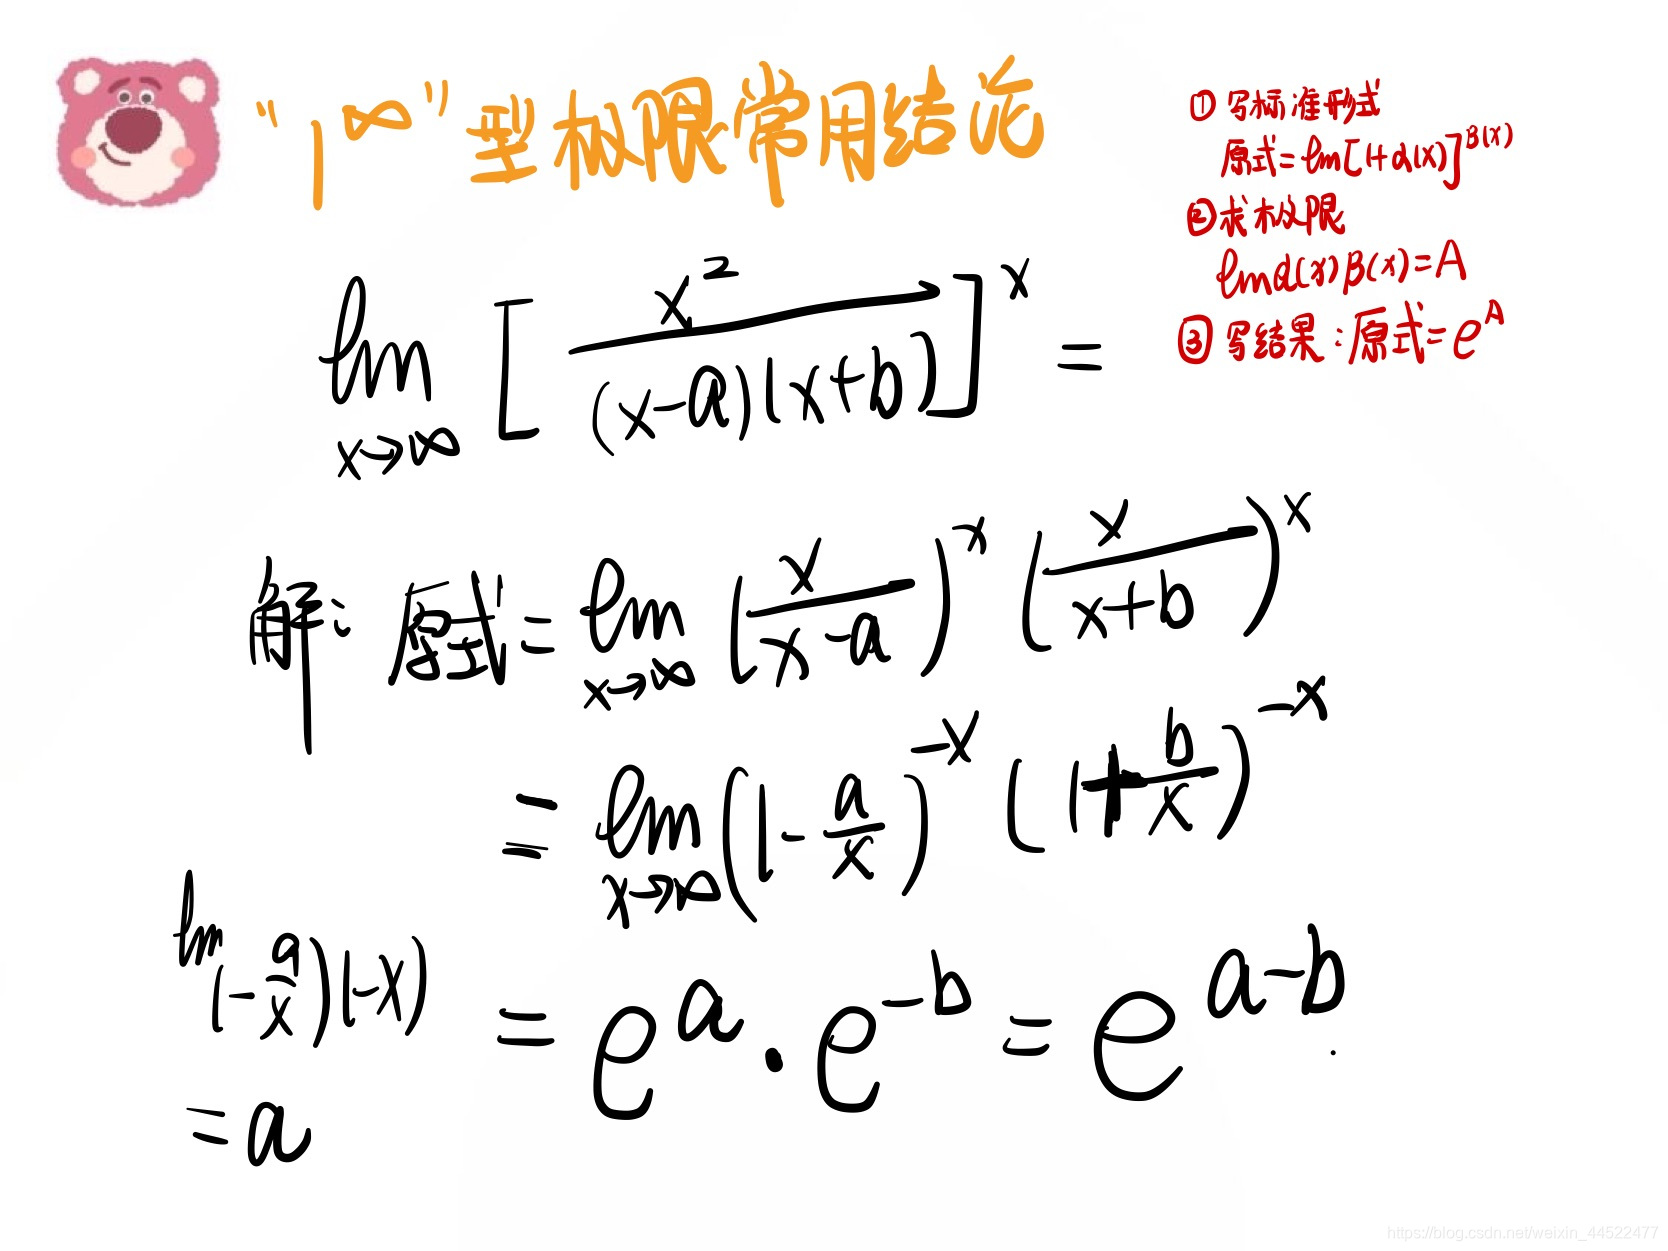 “1^∞”型极限常用结论
① 写标准形式
原式=lim[1+α(x)]^β(x)
② 求极限
lim α(x)β(x)=A
③ 写结果:原式=e^A
lim x→∞ [x²/((x-a)(x+b))]^x =
解: 原式= lim x→∞ (x/(x-a))^x (x/(x+b))^x
= lim x→∞ (1-a/x)^-x (1+b/x)^-x
lim (-a/x)(-x)
= a
= e^a · e^-b = e^a-b.
https://blog.csdn.net/weixin_44522477